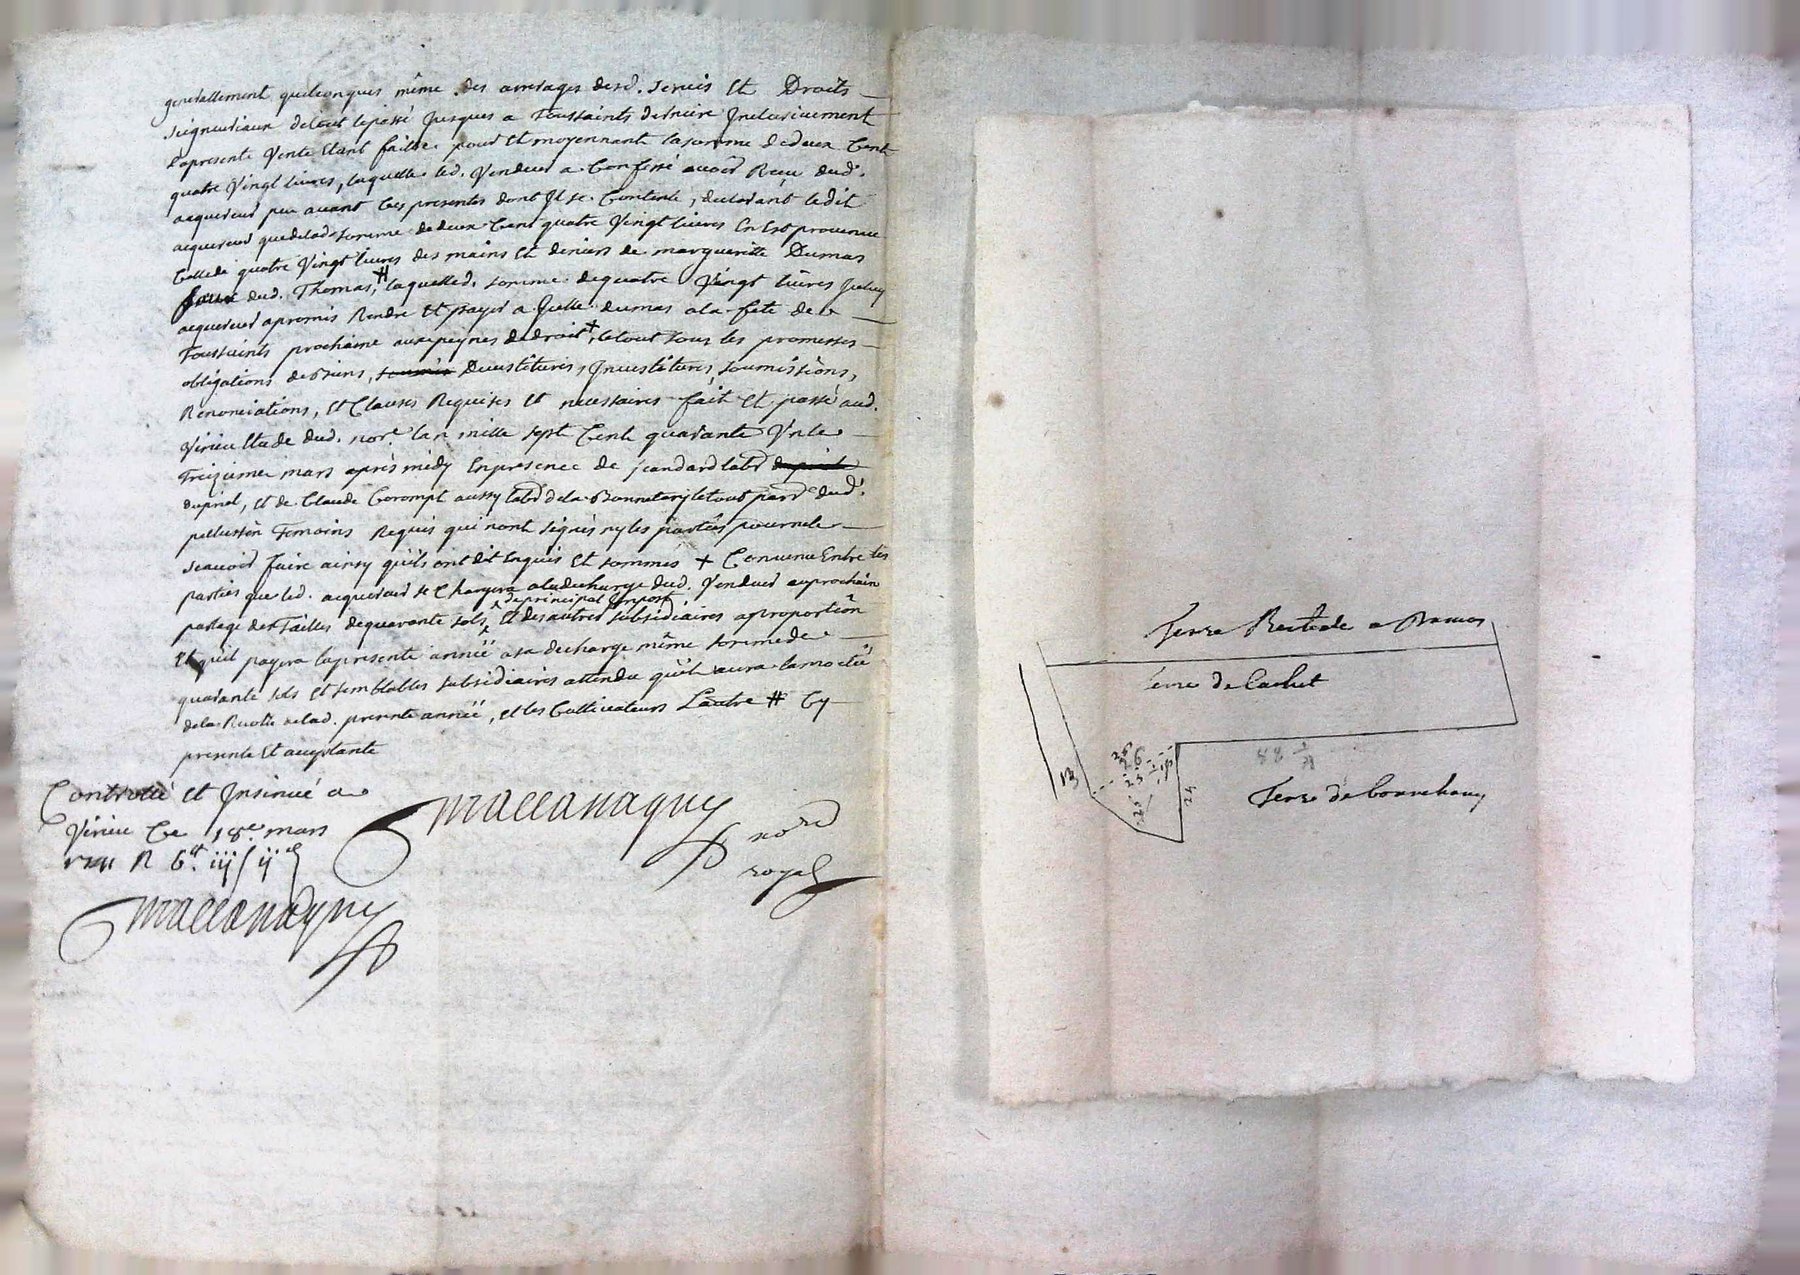 generallement quelconques même des arrerages desd. servis Et Droits
seigneuriaux detout lepassé Jusques a Toussaints derniere Inclusivement
Lapresente Vente Etant faitte pour Et moyennant lasomme dedeux Cent
quatre Vingt livres, laquelle led. Vendeur a Confessé avoir Receu dud.
acquereur peu avant Ces presentes dont Il se Contente, declarant ledit
acquereur quedelad. somme dedeux Cent quatre Vingt livres En Est provenue
Celle de quatre Vingt livres des mains Et deniers de margueritte Dumas
dud. Thomas, # laquelled. somme dequatre Vingt livres Iceluy
acquereur apromis Rendre Et payer a Icelle dumas ala fete de
Toussaints prochaine auxpeynes dedroit +, letout sous les promesses
obligations debiens, Devestitures, Investitures, soumissions,
Renonciations, Et Clauses Requises Et necessaires fait Et passé aud.
Virieu Etude dud. nore. lan mille sept Cent quarante Un le
Treizieme mars après midy Enpresence de jean dard labr
dupriel, Et de Claude Corompt aussy labr dela Bonnetary letout parr. dud.
pellussin Temoins Requis qui nont signés ny les parties pour ne le
scauoir faire ainsy quils ont dit Enquis Et sommés + Convenu Entre les
parties que led. acquereur se Chargera aladecharge dud. Vendeur auprochain
pallege des Tailles dequarante sols deprincipal Impost Et desautres subsidiaires aproportion
Et quil payera lapresente année asa decharge même somme de
quarante sols Et semblables subsidiaires attendu quil aura lamoctié
dela Recolte delad. presente année, et les Cultivateurs Lautre # Cy
presente Et acceptante
Controllé et Insinué a
Virieu Ce 18e mars
R 6tt iijs ij d
mallanagny
nore
royal
mallanagny
Terre
Terre de Cachet
13
26
25
24
88 1/2
Terre de